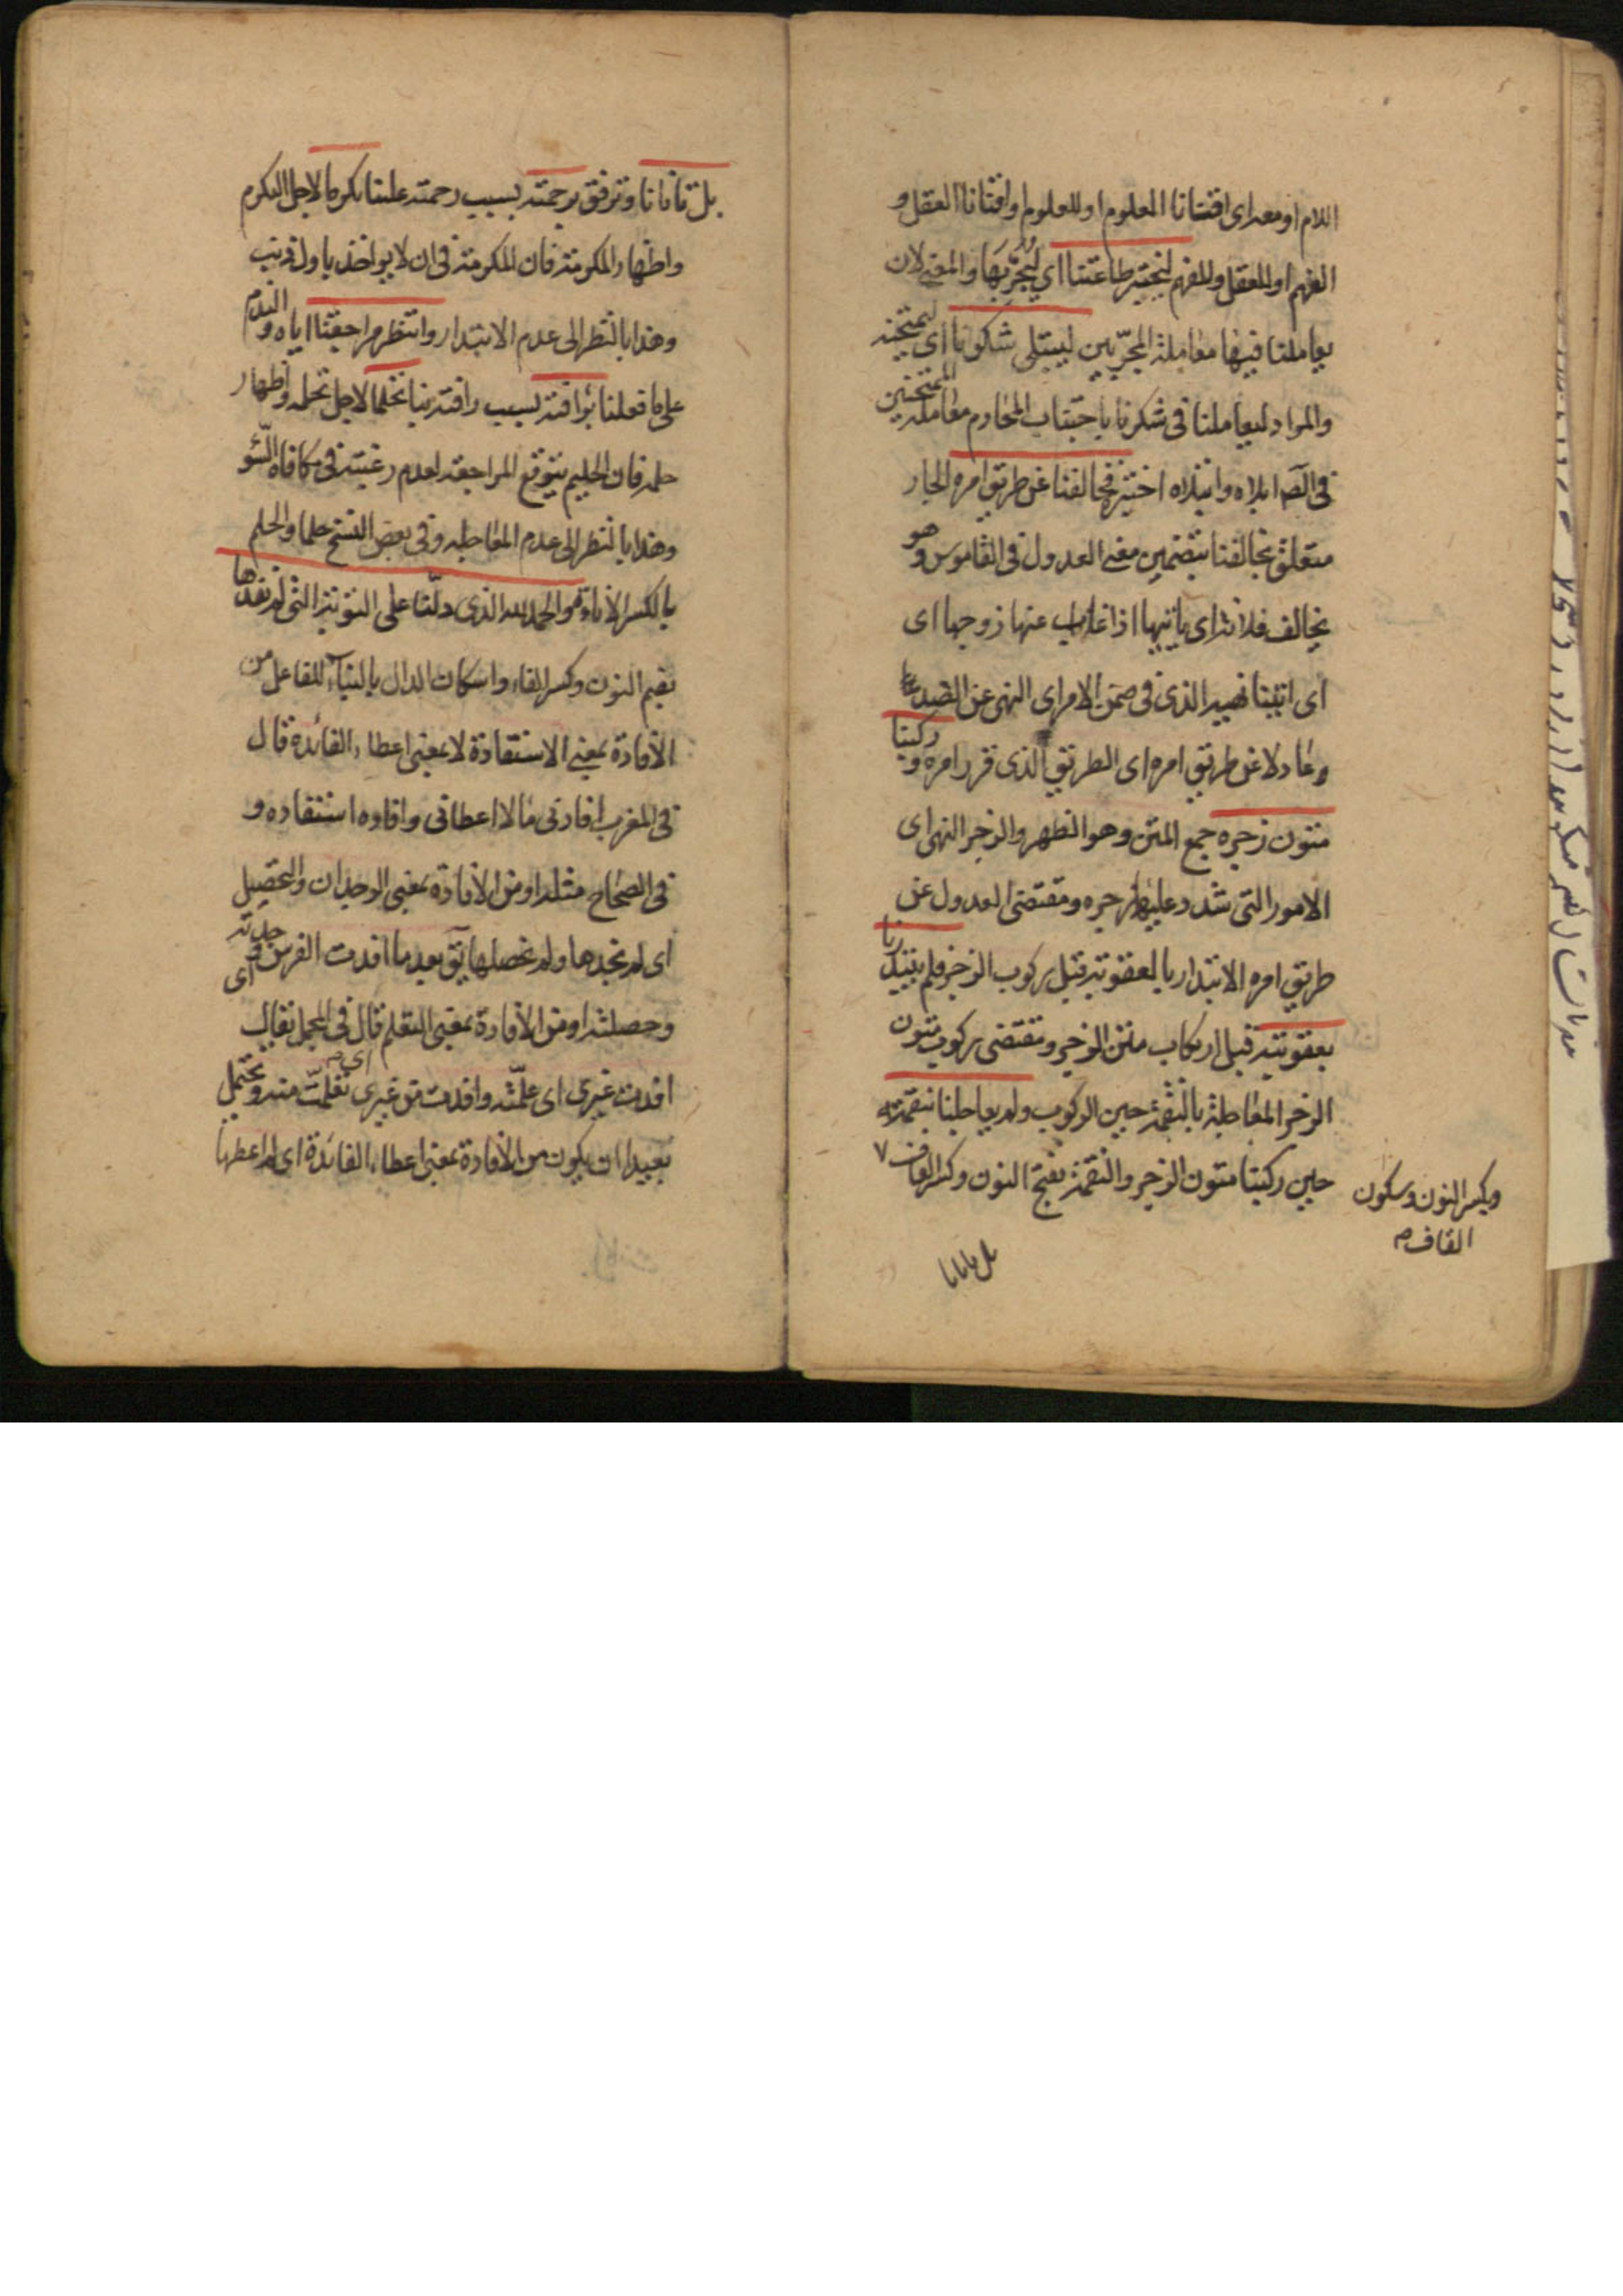 اللام او معه اى افتتانا المعلوم او للعلوم وافتتانا العقل و
الفهم او للعقل وللفهم ليختبر طاعتنا اى ليجرّبها والمعنى لان
يعاملنا فيها معاملة المجرّبين ليبتلى شكرنا اى ليمتحنه
والمراد ليعاملنا فى شكرنا باجتناب المحارم معاملة الممتحنين
فى الصّ ابلاه وابتلاه اختبره فخالفنا عن طريق امره الجار
متعلق بخالفنا بتضمين معنى العدول فى القاموس وهو
يخالف فلانة اى ياتيها اذا غاب عنها زوجها اى
اى اتينا نهيه الذى فى ضمن الامر اى النهى عن الضد
وعادلا عن طريق امره اى الطريق الذى قرر امره وركبنا
متون زجره جمع المتن وهو الظهر والزجر النهى اى
الامور التى شدد عليها زجره ومقتضى العدول عن
طريق امره الابتدار بالعقوبة قبل ركوب الزجر فلم يبتدرنا
بعقوبته قبل ارتكاب متن الزجر ومقتضى ركوب متون
الزجر المعاجلة بالنقمة حين الركوب ولم يعاجلنا بنقمته
حين ركبنا متون الزجر والنقمة بفتح النون وكسر القاف ٧
وبكسر النون وسكون
القاف م
بل تانانا
بل تانانا وترفق برحمته بسبب رحمته علينا تكرما لاجل التكرم
واظهار المكرمة فان المكرمة فى ان لا يواخذ باول ذنب
وهذا بالنظر الى عدم الابتدار وانتظر مراجعتنا اياه والندم
على ما فعلنا برافته بسبب رافته بنا تحلما لاجل تحلمه واظهار
حلمه فان الحليم يتوقع المراجعة لعدم رغبته فى مكافاة السّوء
وهذا بالنظر الى عدم المعاجلة وفى بعض النسخ حلما والحلم
بالكسر الاناءة والحمد لله الذى دلّنا على التوبة التى لم نفدها
بضم النون وكسر الفاء واسكان الدال بالبناء للفاعل من
الافادة بمعنى الاستفادة لا بمعنى اعطاء الفائدة قال
فى المغرب افادنى مالا اعطانى وافاده استفاده و
فى الصحاح مثله او من الافادة بمعنى الوجدان والتحصيل
اى لم نجدها ولم نحصلها يق بعد ما افدت الفرس اى وجدته
وحصلته او من الافادة بمعنى التعلم قال فى المجمل يقال
افدت غيرى اى علّمته وافدت من غيرى اى تعلمت منه ويحتمل
بعيدا ان يكون من الافادة بمعنى اعطاء الفائدة اى لم اعطها